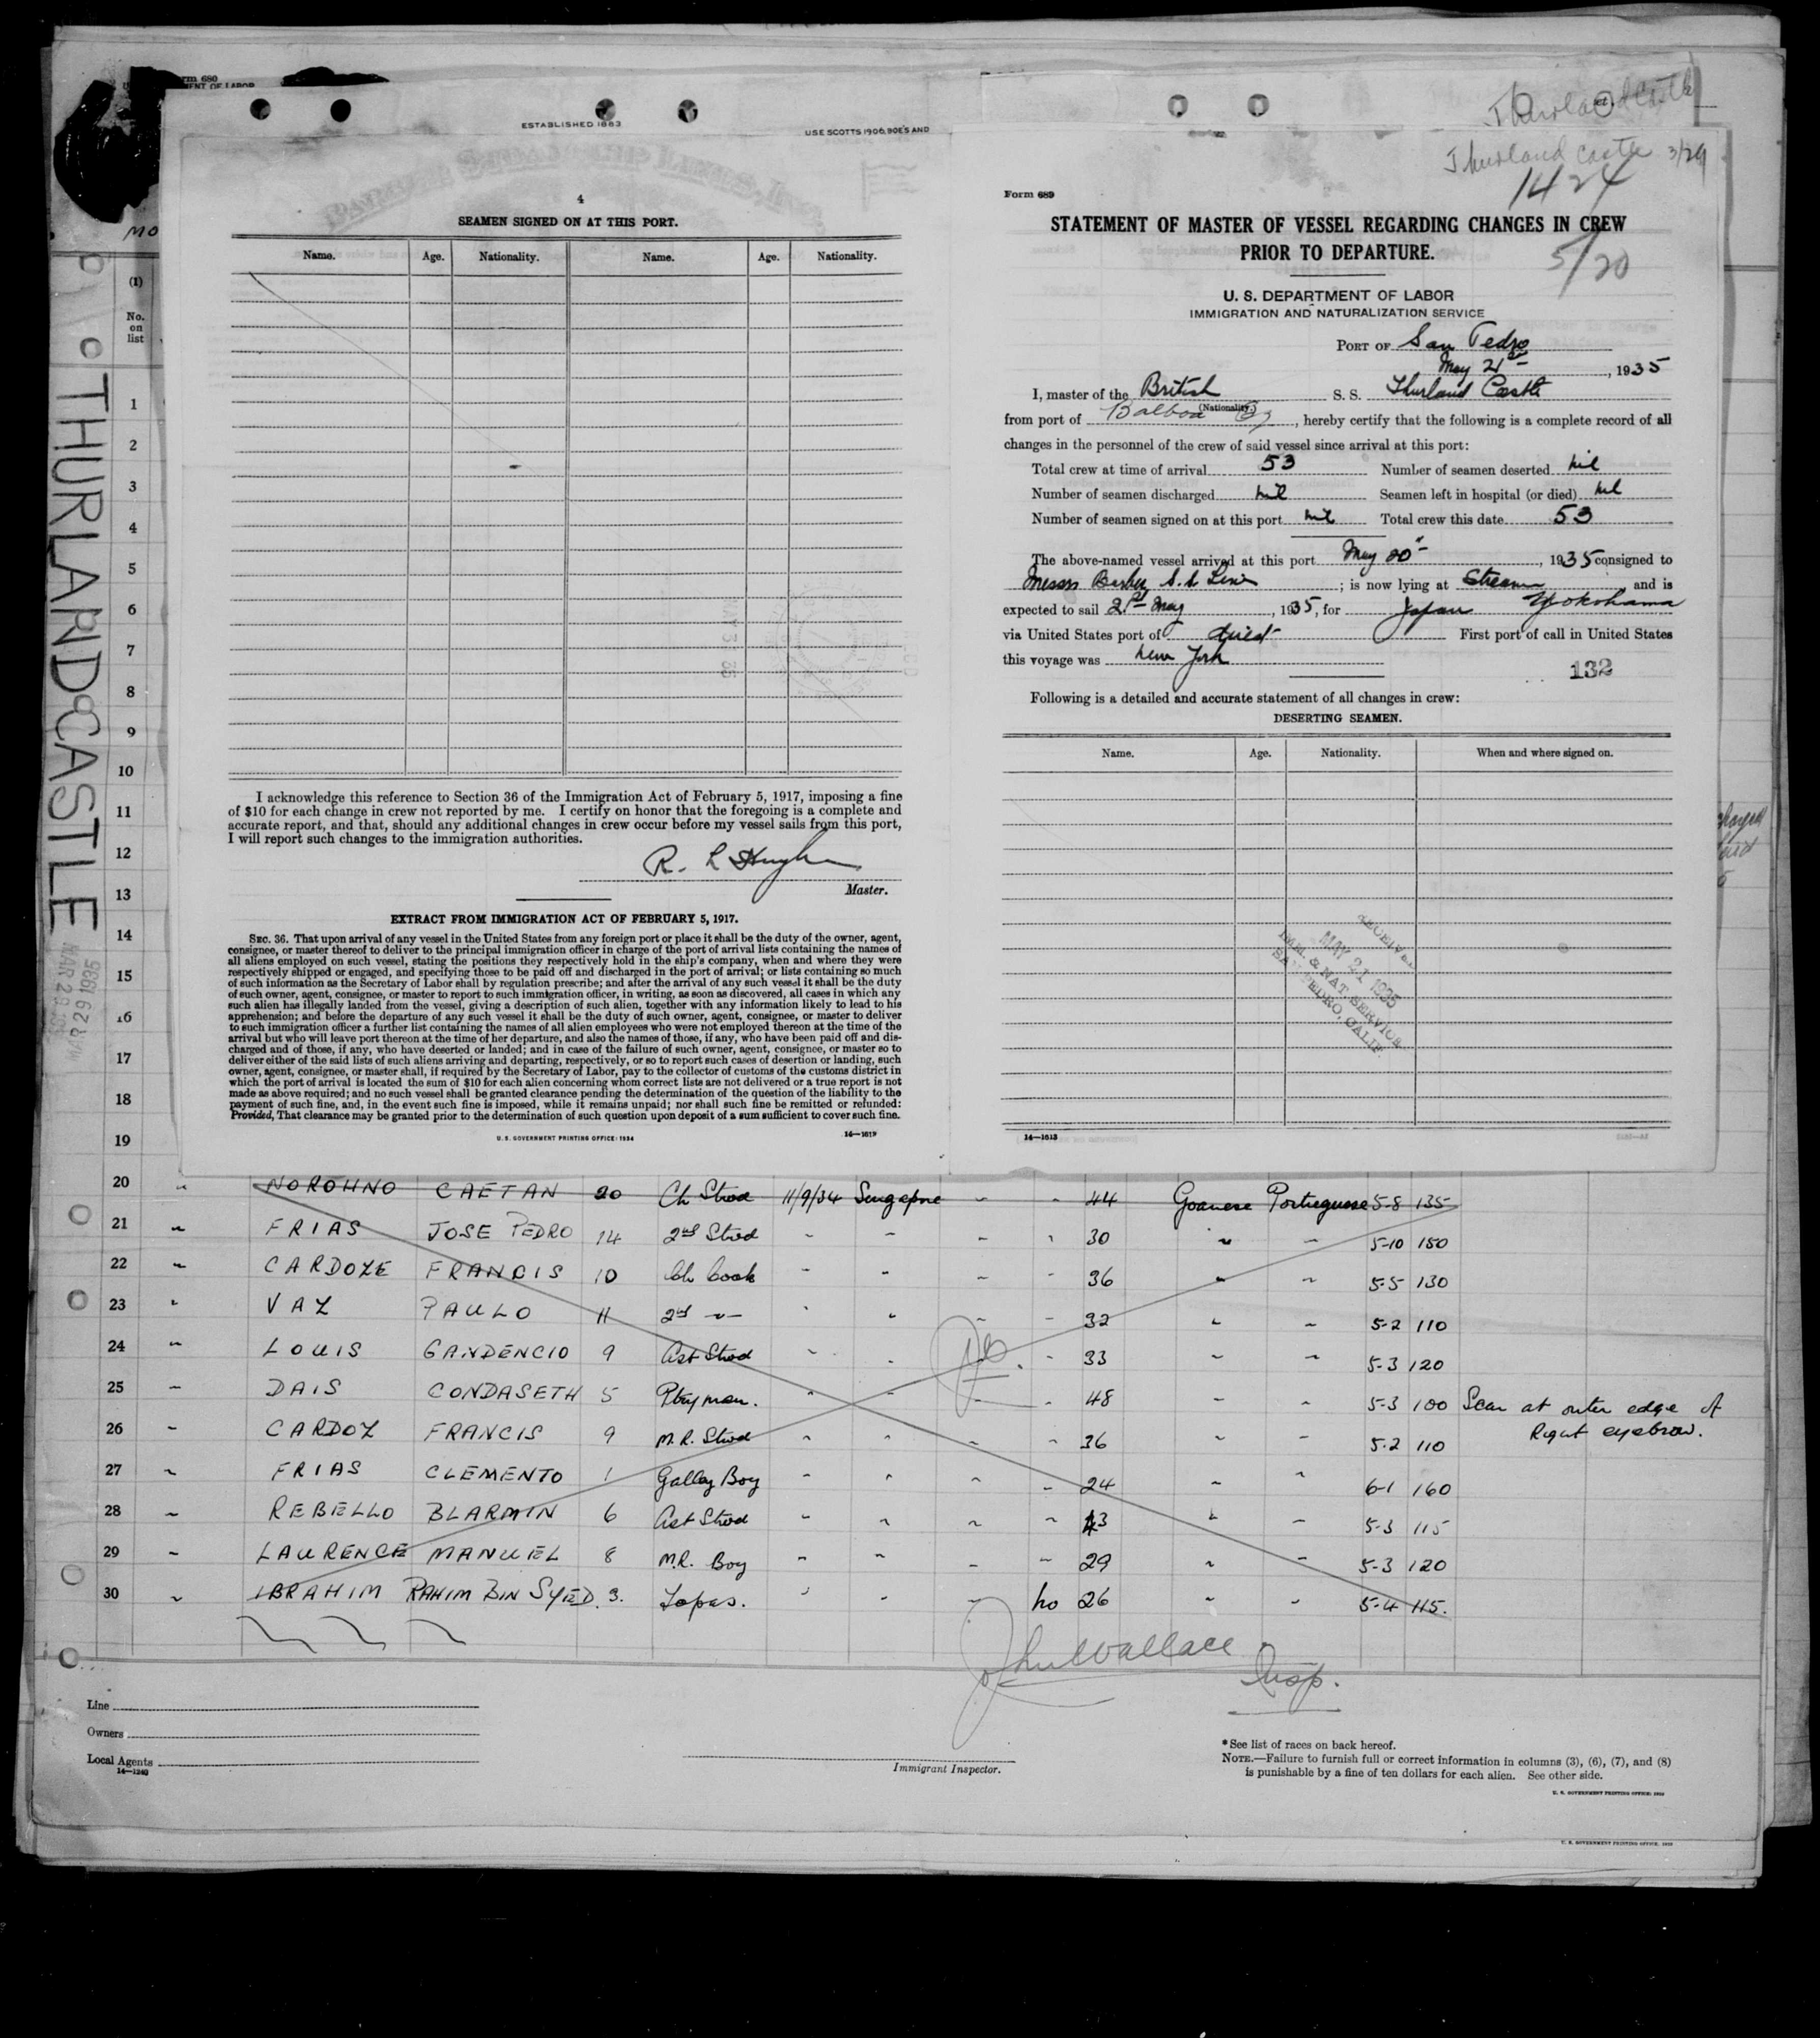 Form 680
U. S. DEPARTMENT OF LABOR
THURLAND CASTLE
MAR 29 1935
(1)
No.
on
list
1
2
3
4
5
6
7
8
9
10
11
12
13
14
15
16
17
18
19
ESTABLISHED 1883
USE SCOTTS 1906, BOE'S AND
4
SEAMEN SIGNED ON AT THIS PORT.
Name. Age. Nationality. Name. Age. Nationality.
I acknowledge this reference to Section 36 of the Immigration Act of February 5, 1917, imposing a fine
of $10 for each change in crew not reported by me. I certify on honor that the foregoing is a complete and
accurate report, and that, should any additional changes in crew occur before my vessel sails from this port,
I will report such changes to the immigration authorities.
R. L Hughes
Master.
EXTRACT FROM IMMIGRATION ACT OF FEBRUARY 5, 1917.
SEC. 36. That upon arrival of any vessel in the United States from any foreign port or place it shall be the duty of the owner, agent,
consignee, or master thereof to deliver to the principal immigration officer in charge of the port of arrival lists containing the names of
all aliens employed on such vessel, stating the positions they respectively hold in the ship's company, when and where they were
respectively shipped or engaged, and specifying those to be paid off and discharged in the port of arrival; or lists containing so much
of such information as the Secretary of Labor shall by regulation prescribe; and after the arrival of any such vessel it shall be the duty
of such owner, agent, consignee, or master to report to such immigration officer, in writing, as soon as discovered, all cases in which any
such alien has illegally landed from the vessel, giving a description of such alien, together with any information likely to lead to his
apprehension; and before the departure of any such vessel it shall be the duty of such owner, agent, consignee, or master to deliver
to such immigration officer a further list containing the names of all alien employees who were not employed thereon at the time of the
arrival but who will leave port thereon at the time of her departure, and also the names of those, if any, who have been paid off and dis-
charged and of those, if any, who have deserted or landed; and in case of the failure of such owner, agent, consignee, or master so to
deliver either of the said lists of such aliens arriving and departing, respectively, or so to report such cases of desertion or landing, such
owner, agent, consignee, or master shall, if required by the Secretary of Labor, pay to the collector of customs of the customs district in
which the port of arrival is located the sum of $10 for each alien concerning whom correct lists are not delivered or a true report is not
made as above required; and no such vessel shall be granted clearance pending the determination of the question of the liability to the
payment of such fine, and, in the event such fine is imposed, while it remains unpaid; nor shall such fine be remitted or refunded:
Provided, That clearance may be granted prior to the determination of such question upon deposit of a sum sufficient to cover such fine.
U. S. GOVERNMENT PRINTING OFFICE: 1934 14—1613
Thurland Castle
Thurland Castle 3/29
1424
5/20
Form 689
STATEMENT OF MASTER OF VESSEL REGARDING CHANGES IN CREW
PRIOR TO DEPARTURE.
U. S. DEPARTMENT OF LABOR
IMMIGRATION AND NATURALIZATION SERVICE
PORT OF San Pedro
May 21st, 1935
I, master of the British S. S. Thurland Castle
(Nationality.)
from port of Balboa Cz, hereby certify that the following is a complete record of all
changes in the personnel of the crew of said vessel since arrival at this port:
Total crew at time of arrival 53 Number of seamen deserted nil
Number of seamen discharged nil Seamen left in hospital (or died) nil
Number of seamen signed on at this port nil Total crew this date 53
The above-named vessel arrived at this port May 20th, 1935 consigned to
Messrs Barber S.S. Line; is now lying at Stream, and is
expected to sail 21st May, 1935, for Japan Yokohama
via United States port of direct First port of call in United States
this voyage was New York
132
Following is a detailed and accurate statement of all changes in crew:
DESERTING SEAMEN.
Name. Age. Nationality. When and where signed on.
RECEIVED
MAY 21 1935
IMM. & NAT SERVICE
SAN PEDRO, CALIF
14—1613
20 " NOROHNO CAETAN 20 Ch Stwd 11/9/34 Singapore " " 44 Goanese Portuguese 5-8 135
21 " FRIAS JOSE PEDRO 14 2nd Stwd " " " " 30 " " 5-10 150
22 " CARDOZE FRANCIS 10 Ch Cook " " " " 36 " " 5-5 130
23 " VAZ PAULO 11 2nd " " " " " 32 " " 5-2 110
24 " LOUIS GANDENCIO 9 Ast Stwd " " " " 33 " " 5-3 120
25 " DAIS CONDASETH 5 Ptry man. " " " " 48 " " 5-3 100 Scar at outer edge of
Right eyebrow.
26 " CARDOZ FRANCIS 9 M.R. Stwd " " " " 36 " " 5-2 110
27 " FRIAS CLEMENTO 1 Galley Boy " " " " 24 " " 6-1 160
28 " REBELLO BLARMIN 6 Ast Stwd " " " " 43 " " 5-3 115
29 " LAURENCE MANUEL 8 M.R. Boy " " " " 29 " " 5-3 120
30 " IBRAHIM RAHIM BIN SYED 3. Topas. " " " no 26 " " 5-4 115.
John Wallace
Insp.
Line
Owners
Local Agents
14—1240
Immigrant Inspector.
*See list of races on back hereof.
NOTE.—Failure to furnish full or correct information in columns (3), (6), (7), and (8)
is punishable by a fine of ten dollars for each alien. See other side.
U. S. GOVERNMENT PRINTING OFFICE: 1933
U. S. GOVERNMENT PRINTING OFFICE, 1933